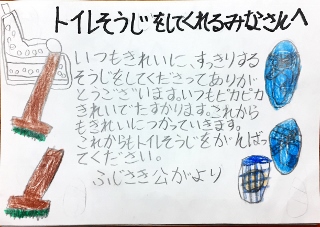 トイレそうじをしてくれるみなさんへ
いつもきれいに、すっきりする
そうじをしてくださってありが
とうございます。いつもピカピカ
きれいでたすかります。これから
もきれいにつかっていきます。
これからもトイレそうじをがんばっ
てください。
ふじさき公がより